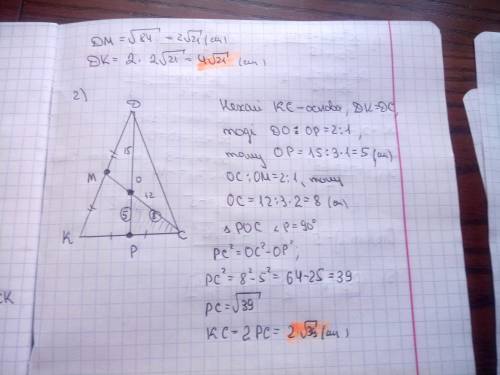 DM = √84 = 2√21 (см)
DK = 2 · 2√21 = 4√21 (см)
2)
D
15
M
O
12
5
8
K
P
C
Нехай KC - основа, DK = DC,
тоді DO : OP = 2:1,
тому OP = 15:3·1 = 5 (см)
OC : OM = 2:1, тому
OC = 12:3·2 = 8 (см)
△ POC ∠P = 90°
PC² = OC² - OP²,
PC² = 8² - 5² = 64 - 25 = 39
PC = √39
KC = 2PC = 2√39 (см)
СК